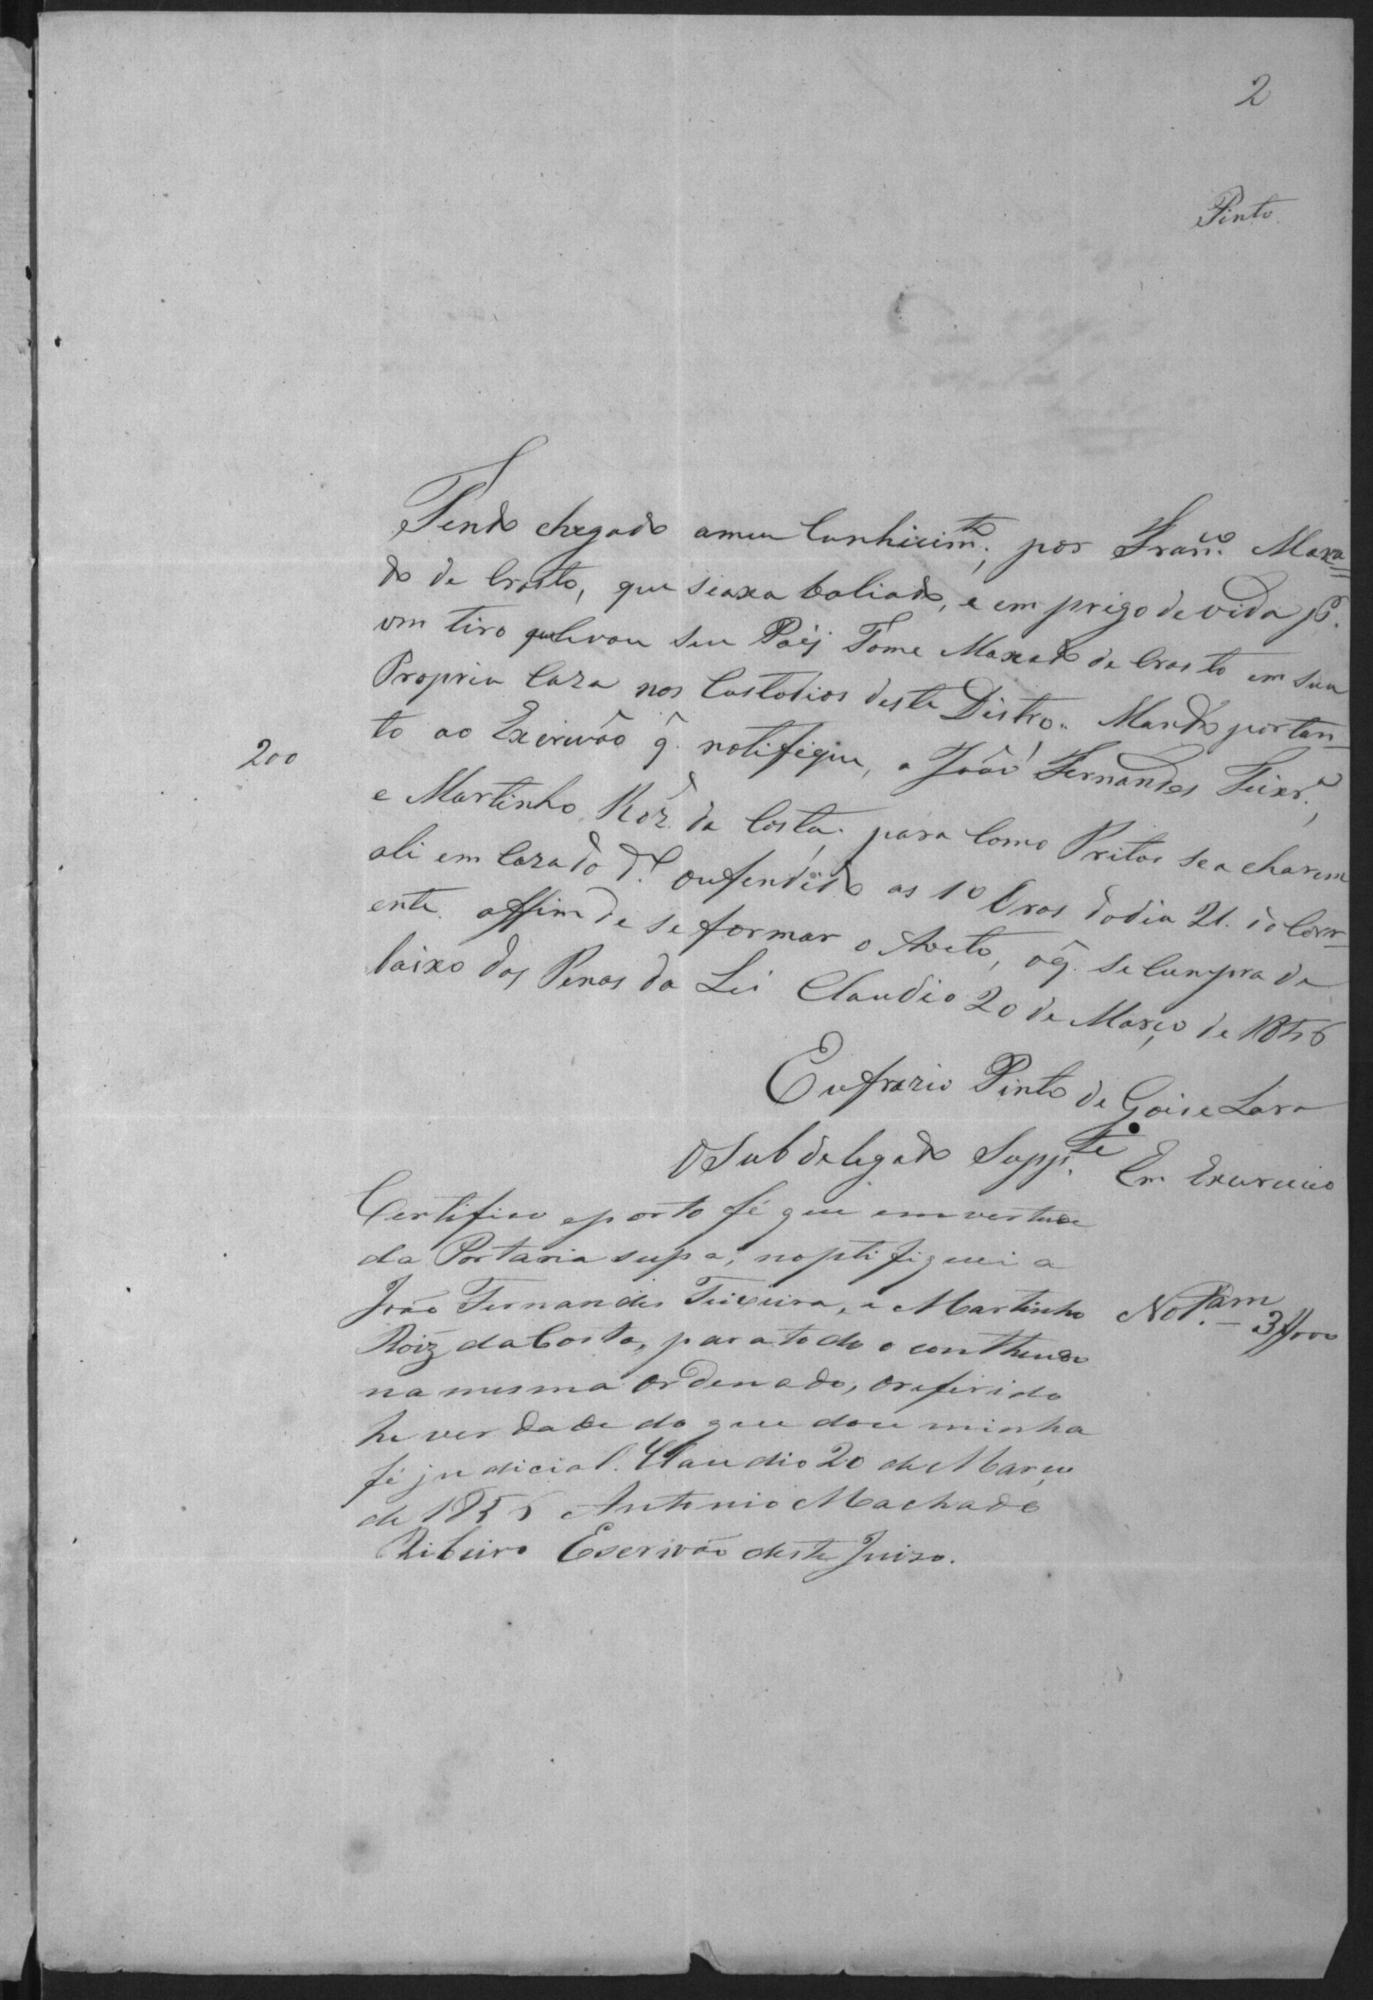 2
Pinto
Tendo chegado ameu Cunhicimto; por Franco. Maxa=
do de Crasto, que seaxa baliado, e em prigo de vida pr.
um tiro qulevou seu Paij Tome Maxado de Crasto em sua
Propria Caza nos Custodios deste Distro. Mando portan-
200
to ao Excrivão q. notifique, a João Fernandes Teixra.,
e Martinho Roz. da Costa, para Como Pritos se acharem
ali em Caza do do. oufendido as 10 Oras do dia 21. do Corr-
ente affim de se formar o Aucto, oq. se Cumpra de
baixo das Penas da Lei Claudio 20 de Março de 1856
Eufrazio Pinto de Gois e Lara
O Subdelegado Suppte. Em Exercicio
Certifico eporto fé que em vertude
da Portaria supa; noptifiquei a
João Fernandes Teixeira, e Martinho
Roiz da Costa, para todo o conthiudo
Not.am - 3$000
na mesma ordenado, oreferido
he verdade do que dou minha
fé judicial. Claudio 20 de Março
de 1856 Antonio Machado
Ribeiro Escrivão deste Juizo.